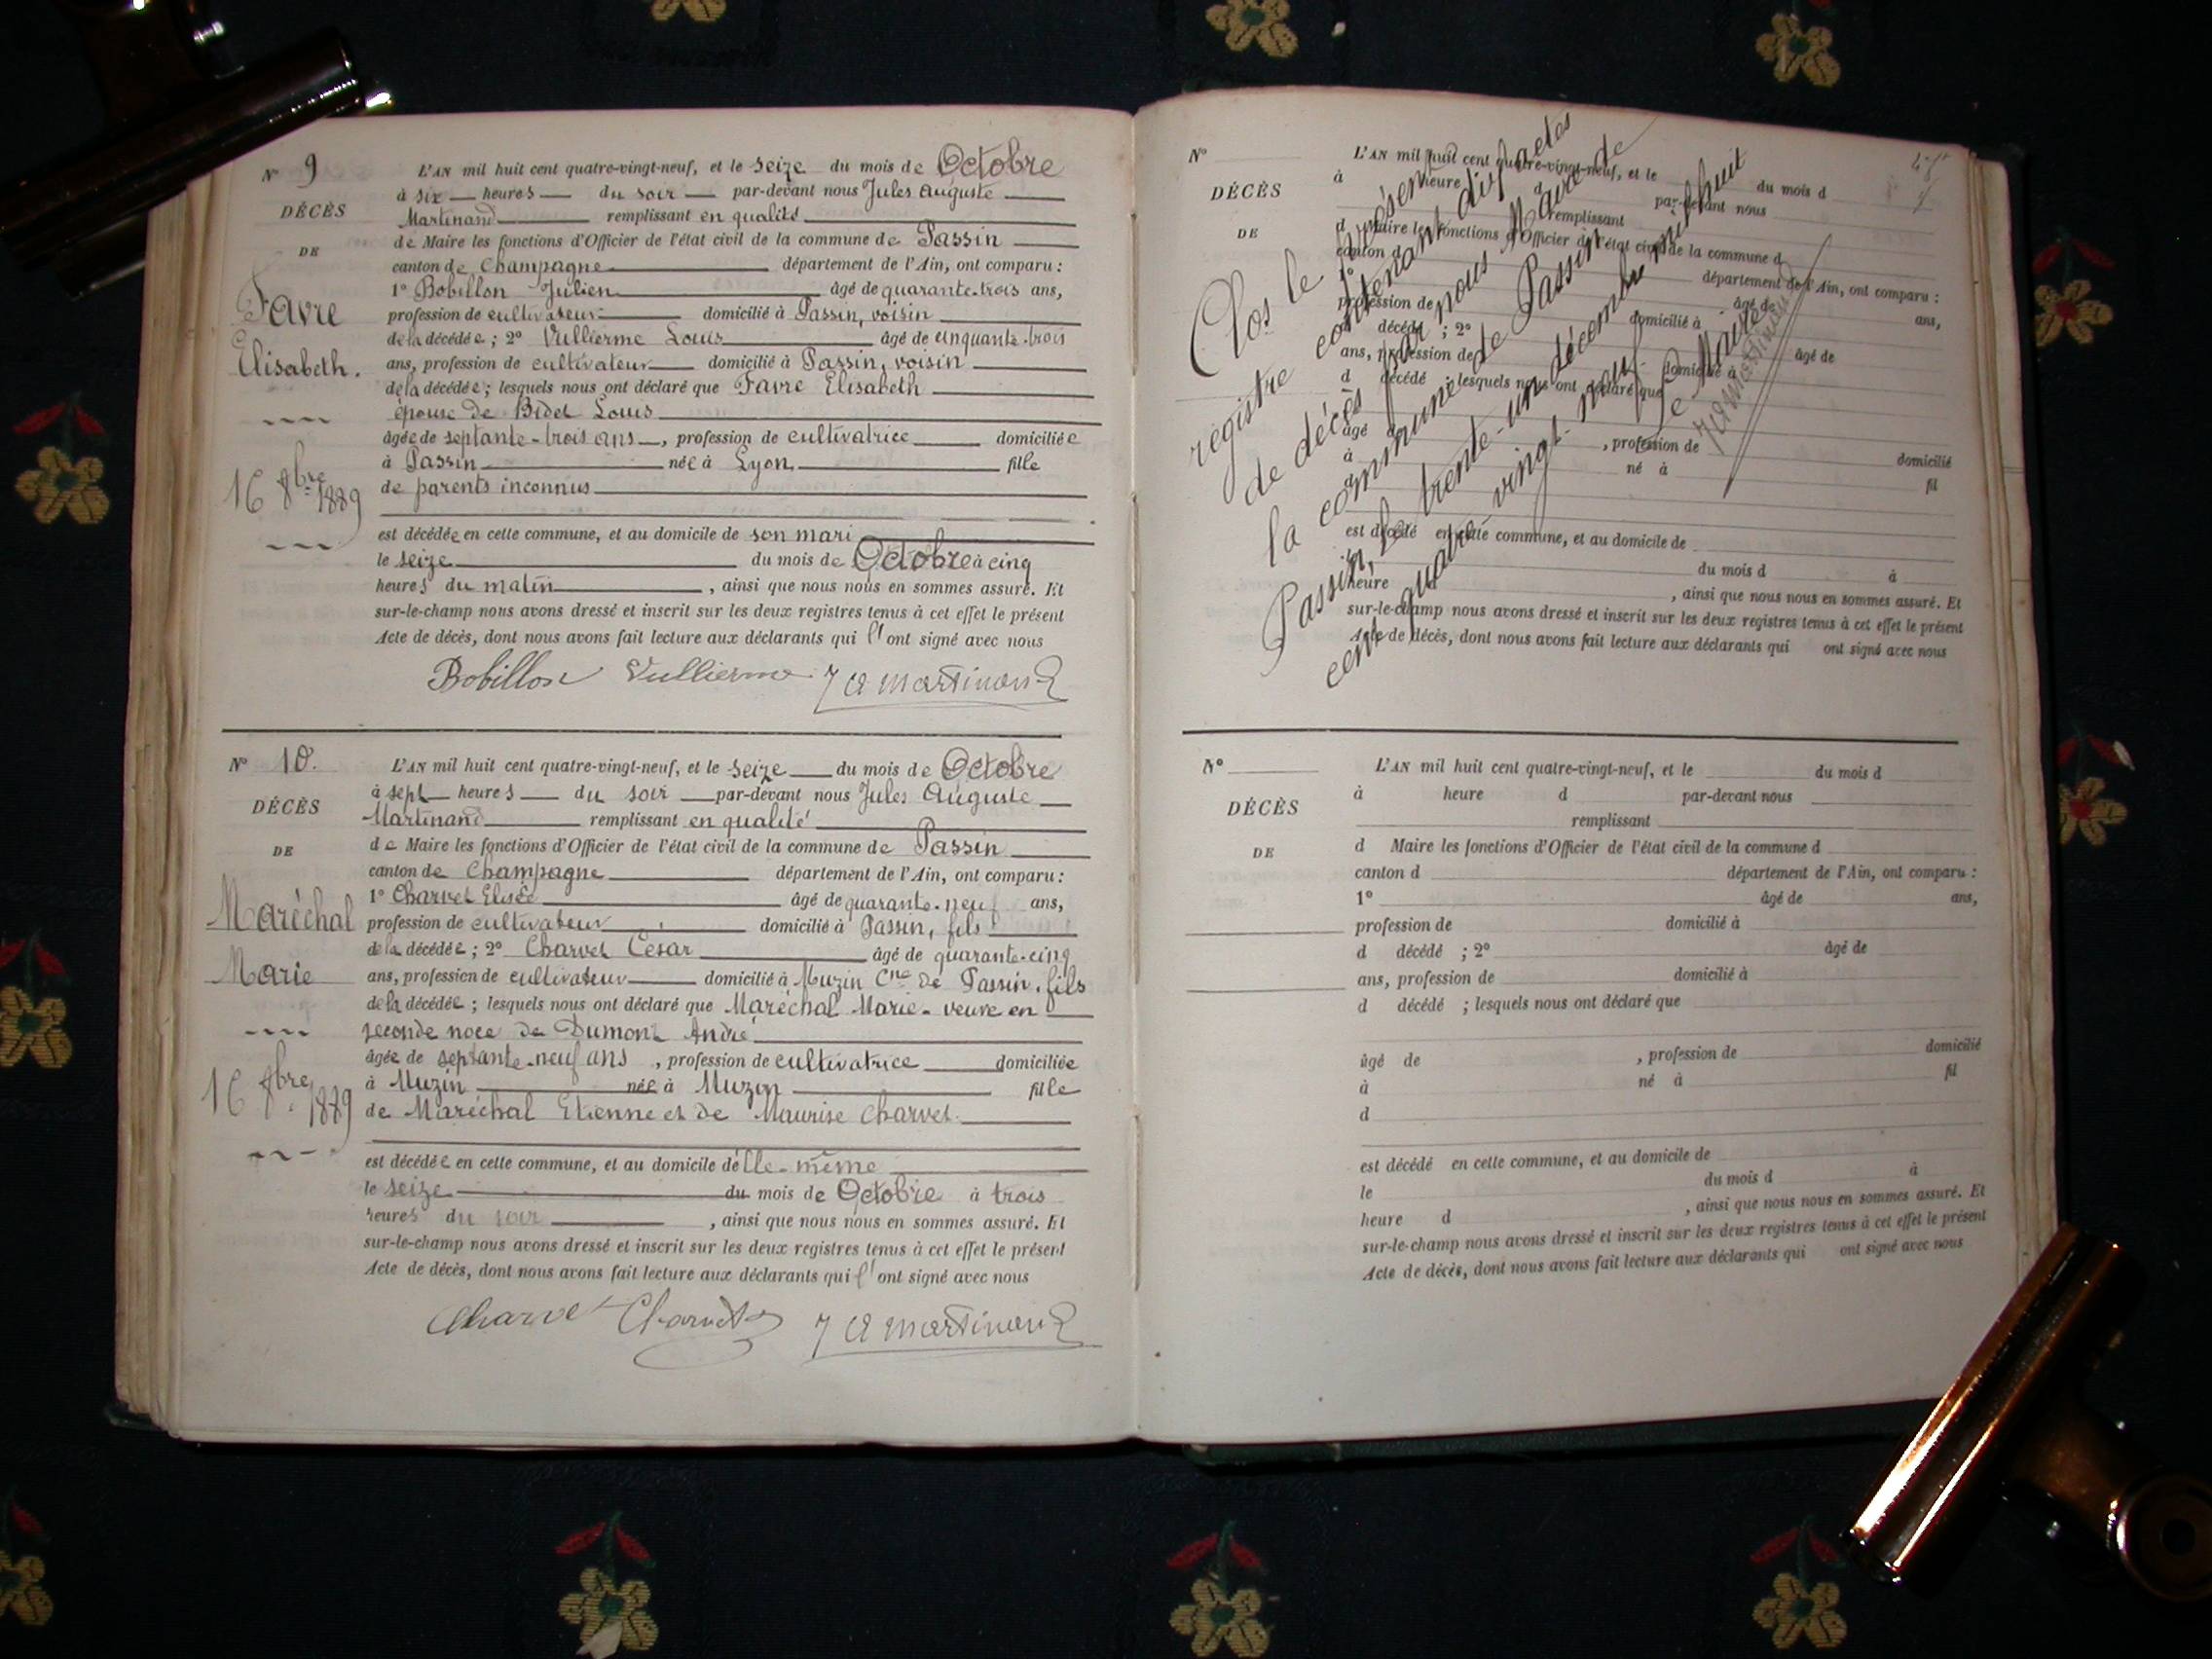 N° 9
DÉCÈS
DE
Favre
Élisabeth.
16 8bre 1889
L'AN mil huit cent quatre-vingt-neuf, et le seize du mois de Octobre
à six heures du soir par-devant nous Jules Auguste
Martinand remplissant en qualité
de Maire les fonctions d'Officier de l'état civil de la commune de Passin
canton de Champagne département de l'Ain, ont comparu :
1° Bobillon Julien âgé de quarante-trois ans,
profession de cultivateur domicilié à Passin, voisin
de la décédée ; 2° Vullierme Louis âgé de cinquante-trois
ans, profession de cultivateur domicilié à Passin, voisin
de la décédée ; lesquels nous ont déclaré que Favre Elisabeth
épouse de Bidet Louis
âgée de septante-trois ans, profession de cultivatrice domiciliée
à Passin née à Lyon, fille
de parents inconnus
est décédée en cette commune, et au domicile de son mari
le seize du mois de Octobre à cinq
heures du matin, ainsi que nous nous en sommes assuré. Et
sur-le-champ nous avons dressé et inscrit sur les deux registres tenus à cet effet le présent
Acte de décès, dont nous avons fait lecture aux déclarants qui l'ont signé avec nous
Bobillon Vullierme J A Martinand
N° 10.
DÉCÈS
DE
Maréchal
Marie
16 8bre 1889
L'AN mil huit cent quatre-vingt-neuf, et le seize du mois de Octobre
à sept heures du soir par-devant nous Jules Auguste
Martinand remplissant en qualité
de Maire les fonctions d'Officier de l'état civil de la commune de Passin
canton de Champagne département de l'Ain, ont comparu :
1° Charvet Elisée âgé de quarante-neuf ans,
profession de cultivateur domicilié à Passin, fils
de la décédée ; 2° Charvet César âgé de quarante-cinq
ans, profession de cultivateur domicilié à Muzin Cne de Passin, fils
de la décédée ; lesquels nous ont déclaré que Maréchal Marie - veuve en
seconde noce de Dumont André
âgée de septante-neuf ans, profession de cultivatrice domiciliée
à Muzin née à Muzin fille
de Maréchal Etienne et de Maurise Charvet.
est décédée en cette commune, et au domicile d'elle-même
le seize du mois de Octobre à trois
heures du soir, ainsi que nous nous en sommes assuré. Et
sur-le-champ nous avons dressé et inscrit sur les deux registres tenus à cet effet le présent
Acte de décès, dont nous avons fait lecture aux déclarants qui l'ont signé avec nous
Charvet Charvet J A Martinand
N°
DÉCÈS
DE
L'AN mil huit cent quatre-vingt-neuf, et le du mois d
à heure d par-devant nous
remplissant
d Maire les fonctions d'Officier de l'état civil de la commune d
canton d département de l'Ain, ont comparu :
1° âgé de ans,
profession de domicilié à
d décédé ; 2° âgé de
ans, profession de domicilié à
d décédé ; lesquels nous ont déclaré que
âgé de , profession de domicilié
à né à fil
d
est décédé en cette commune, et au domicile de
le du mois d à
heure d , ainsi que nous nous en sommes assuré. Et
sur-le-champ nous avons dressé et inscrit sur les deux registres tenus à cet effet le présent
Acte de décès, dont nous avons fait lecture aux déclarants qui ont signé avec nous
Clos le présent
registre contenant dix actes
de décès par nous Maire de
la commune de Passin
Passin, le trente-un décembre mil huit
cent quatre vingt-neuf
Le Maire
J A Martinand
N°
DÉCÈS
DE
L'AN mil huit cent quatre-vingt-neuf, et le du mois d
à heure d par-devant nous
remplissant
d Maire les fonctions d'Officier de l'état civil de la commune d
canton d département de l'Ain, ont comparu :
1° âgé de ans,
profession de domicilié à
d décédé ; 2° âgé de
ans, profession de domicilié à
d décédé ; lesquels nous ont déclaré que
âgé de , profession de domicilié
à né à fil
d
est décédé en cette commune, et au domicile de
le du mois d à
heure d , ainsi que nous nous en sommes assuré. Et
sur-le-champ nous avons dressé et inscrit sur les deux registres tenus à cet effet le présent
Acte de décès, dont nous avons fait lecture aux déclarants qui ont signé avec nous